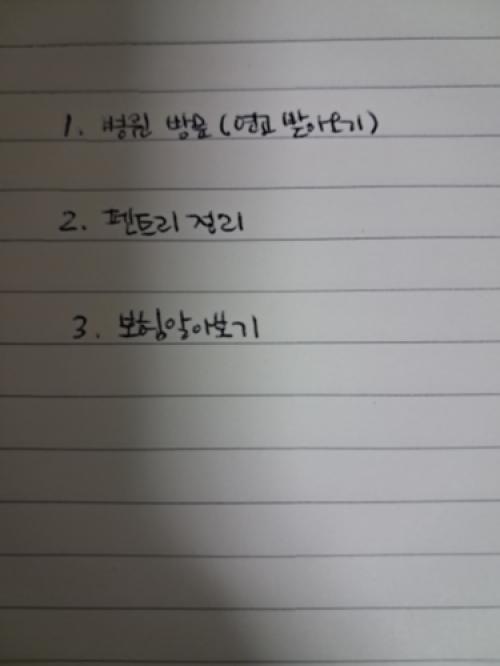 1. 병원 방문 (연고 받아오기)
2. 펜트리 정리
3. 보험알아보기